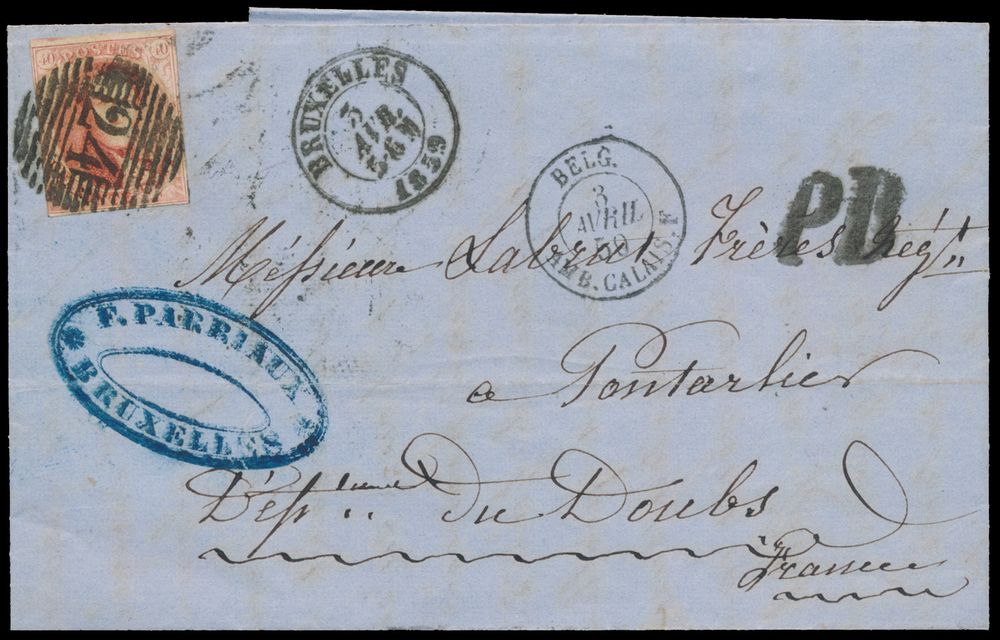 40 POSTES 40
24
BRUXELLES
3
AVR.
5-6
1859
BELG.
3
AVRIL
59
AMB. CALAIS. F
PD
Messieurs Labrot Frères Négts
F. PARRIAUX
BRUXELLES
a Pontarlier
Dépt. du Doubs
France